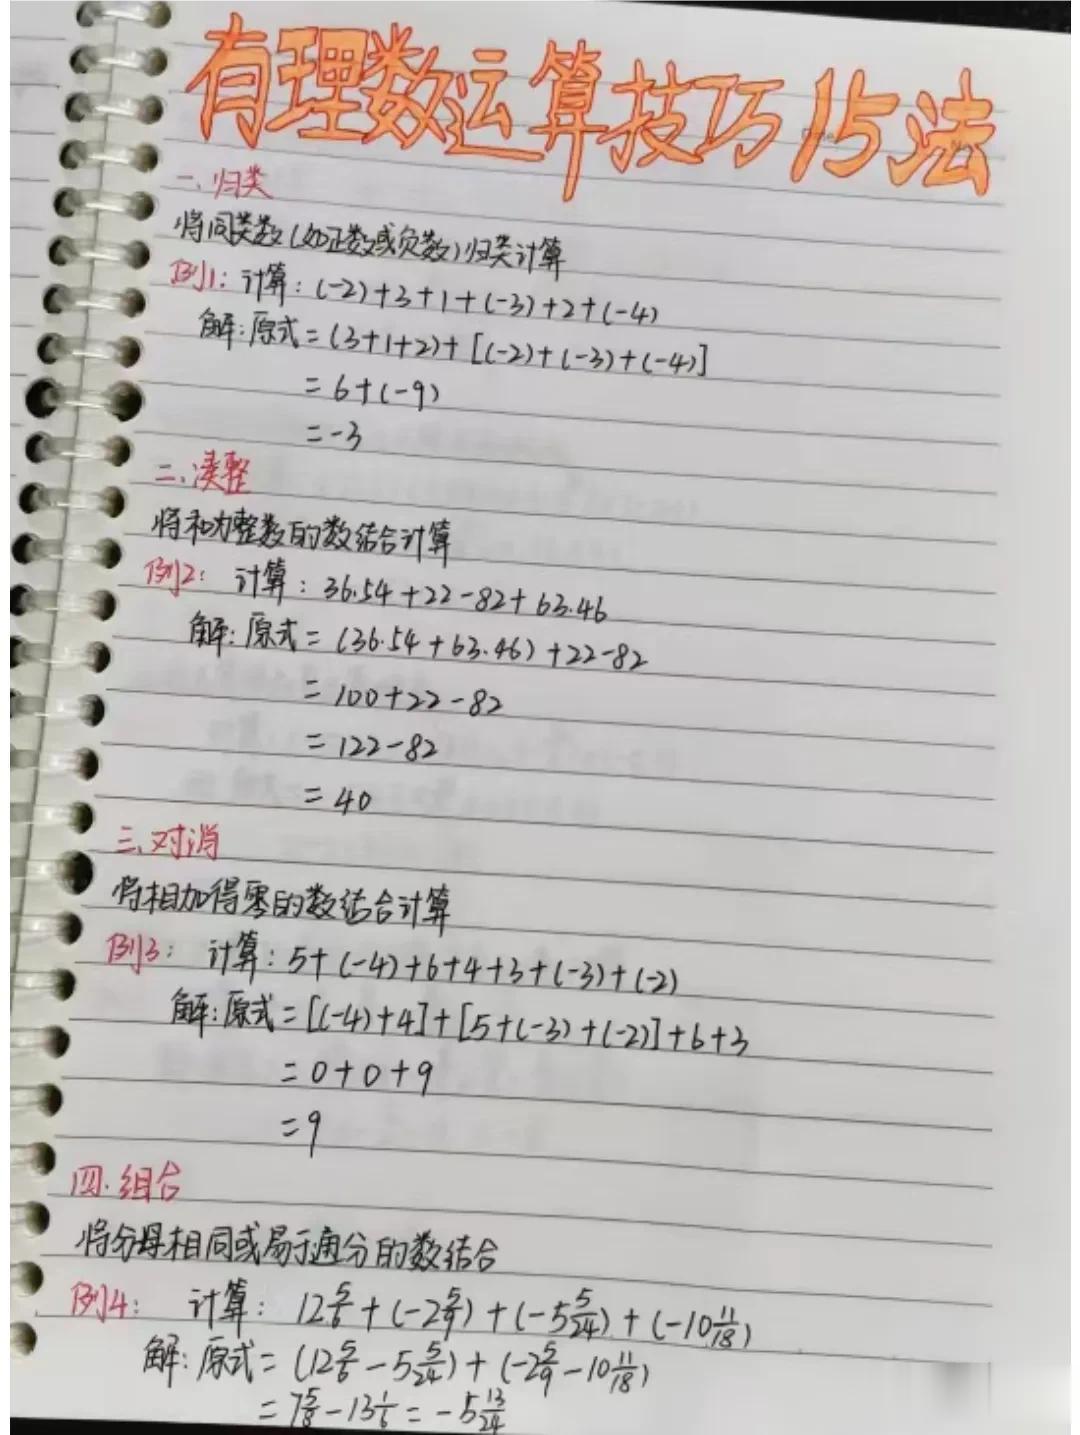 有理数运算技巧15法
一、归类
将同类数(如正数或负数)归类计算
例1: 计算: (-2)+3+1+(-3)+2+(-4)
解: 原式=(3+1+2)+[(-2)+(-3)+(-4)]
=6+(-9)
=-3
二、凑整
将和为整数的数结合计算
例2: 计算: 36.54+22-82+63.46
解: 原式=(36.54+63.46)+22-82
=100+22-82
=122-82
=40
三、对消
将相加得零的数结合计算
例3: 计算: 5+(-4)+6+4+3+(-3)+(-2)
解: 原式=[(-4)+4]+[5+(-3)+(-2)]+6+3
=0+0+9
=9
四、组合
将分母相同或易于通分的数结合
例4: 计算: 12 5/6+(-2 5/9)+(-5 5/24)+(-10 11/18)
解: 原式=(12 5/6-5 5/24)+(-2 5/9-10 11/18)
=7 5/8-13 1/6=-5 13/24